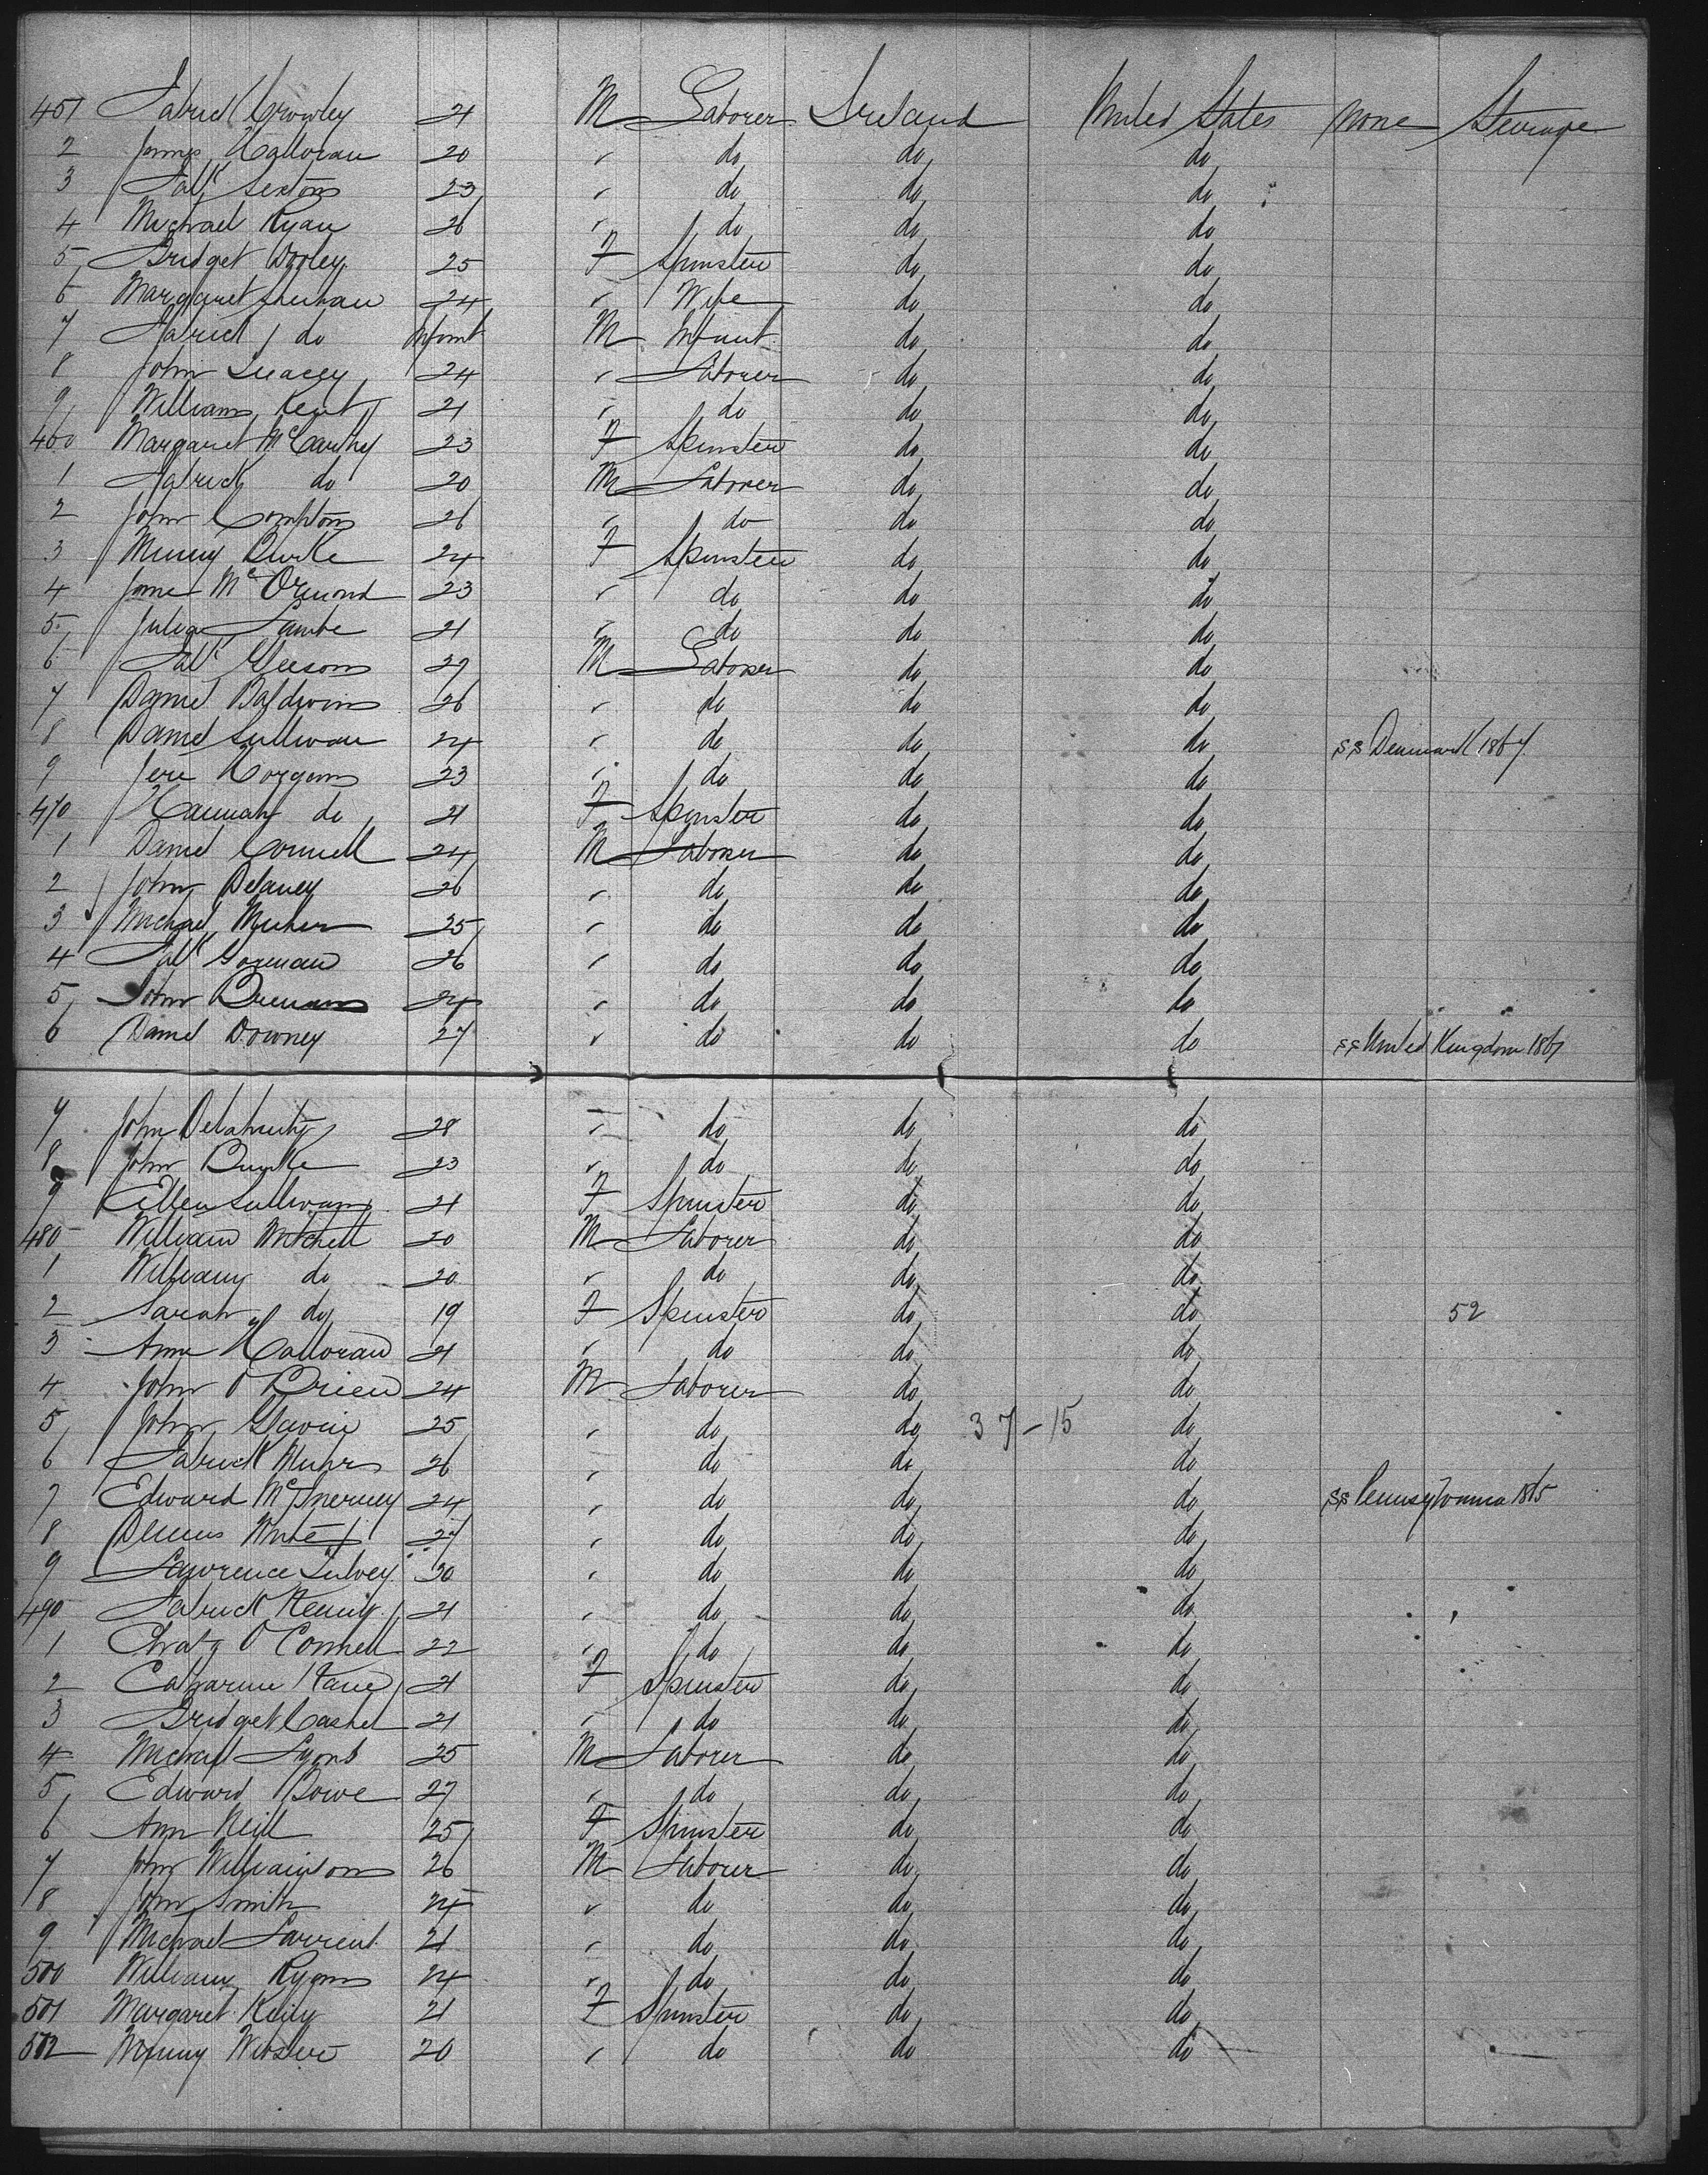 451 Patrick Crowley 21 M Laborer Ireland United States none Steerage
2 James Halloran 20 " do do do
3 Patk Sexton 23 " do do do
4 Michael Ryan 26 " do do do
5 Bridget Dooley 25 F Spinster do do
6 Margaret Sheehan 24 " Wife do do
7 Patrick do Infant M Infant do do
8 John 24 " Laborer do do
9 William Kent 21 " do do do
460 Margaret McCarthy 23 F Spinster do do
1 Patrick do 20 M Laborer do do
2 John Compton 26 " do do do
3 Burke 24 F Spinster do do
4 Jane McOrmond 23 " do do do
5 Julia Lambe 21 " do do do
6 Patk Gleeson 27 M Laborer do do
7 Daniel Baldwin 26 " do do do
8 Daniel Sullivan 24 " do do do SS Denmark 1867
9 Jere Horgan 23 " do do do
470 Hannah do 21 F Spinster do do
1 Daniel Connell 24 M Laborer do do
2 John Delaney 26 " do do do
3 Michael Meher 25 " do do do
4 Patk Gorman 26 " do do do
5 John Brennan 24 " do do do
6 Daniel Downey 27 " do do do SS United Kingdom 1867
7 John Delahunty 28 " do do do
8 John Burke 23 " do do do
9 Ellen Sullivan 21 F Spinster do do
480 William Mitchell 20 M Laborer do do
1 William do 20 " do do do
2 Sarah do 19 F Spinster do do 52
3 Anne Halloran 21 " do do do
4 John O'Brien 24 M Laborer do do
5 John Glavin 25 " do do 37-15 do
6 Patrick 26 " do do do
7 Edward McInerney 24 " do do do SS Pennsylvania 1865
8 Dennis White 27 " do do do
9 Lawrence 30 " do do do
490 Patrick 21 " do do do
1 O'Connell 22 " do do do
2 Catharine Kane 21 F Spinster do do
3 Bridget Cashel 21 " do do do
4 Michael Lyons 25 M Laborer do do
5 Edward Bowe 27 " do do do
6 Ann Neill 25 F Spinster do do
7 John Williamson 26 M Laborer do do
8 John Smith 24 " do do do
9 Michael 21 " do do do
500 William Ryan 24 " do do do
501 Margaret Keily 21 F Spinster do do
502 Webster 20 " do do do